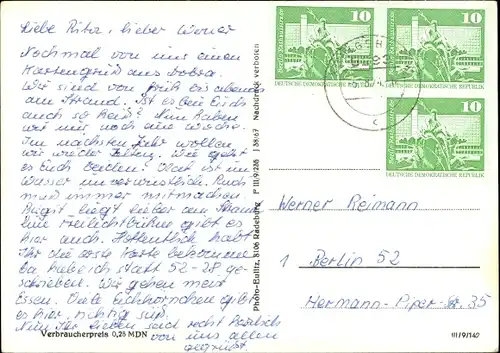 Liebe Rita, lieber Werner
Nochmal von uns einen
Kartengruß aus
Wir sind von früh bis abends
am Strand. Ist es bei Euch
auch so heiß? Nun haben
wir nur noch eine Woche.
Im nächsten Jahr wollen
wir wieder zelten. Wie geht
es Euch beiden? ist im
Wasser unverwüstlich. Auch
muß immer mitmachen
Birgit liegt lieber am Strand
Eine Freilichtbühne gibt es
hier auch. Hoffentlich habt
Ihr die erste Karte bekommen
Da habe ich statt 52 - 28 ge-
schrieben. Wir gehen meist
Essen. Viele Eichhörnchen gibt
es hier, richtig süß
Nun Ihr Lieben seid recht herzlich
von uns allen
gegrüßt.
Verbraucherpreis 0,25 MDN
Photo-Bulitz, 8106 Radeburg P III/9/235 J 38/67 Nachdruck verboten
10
DEUTSCHE DEMOKRATISCHE REPUBLIK
10
DEUTSCHE DEMOKRATISCHE REPUBLIK
10
DEUTSCHE DEMOKRATISCHE REPUBLIK
Werner Reimann
1 Berlin 52
Hermann-Piper-Str. 35
III/9/142